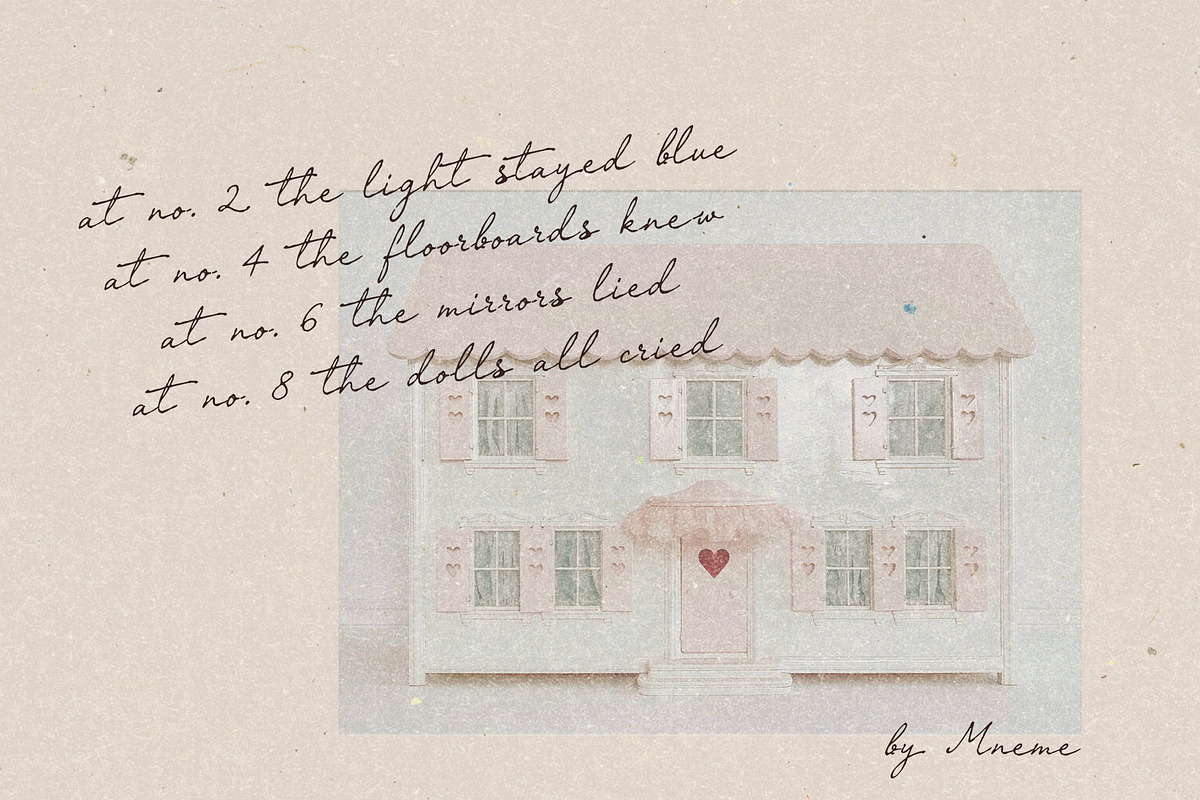 at no. 2 the light stayed blue
at no. 4 the floorboards knew
at no. 6 the mirrors lied
at no. 8 the dolls all cried
by Mneme